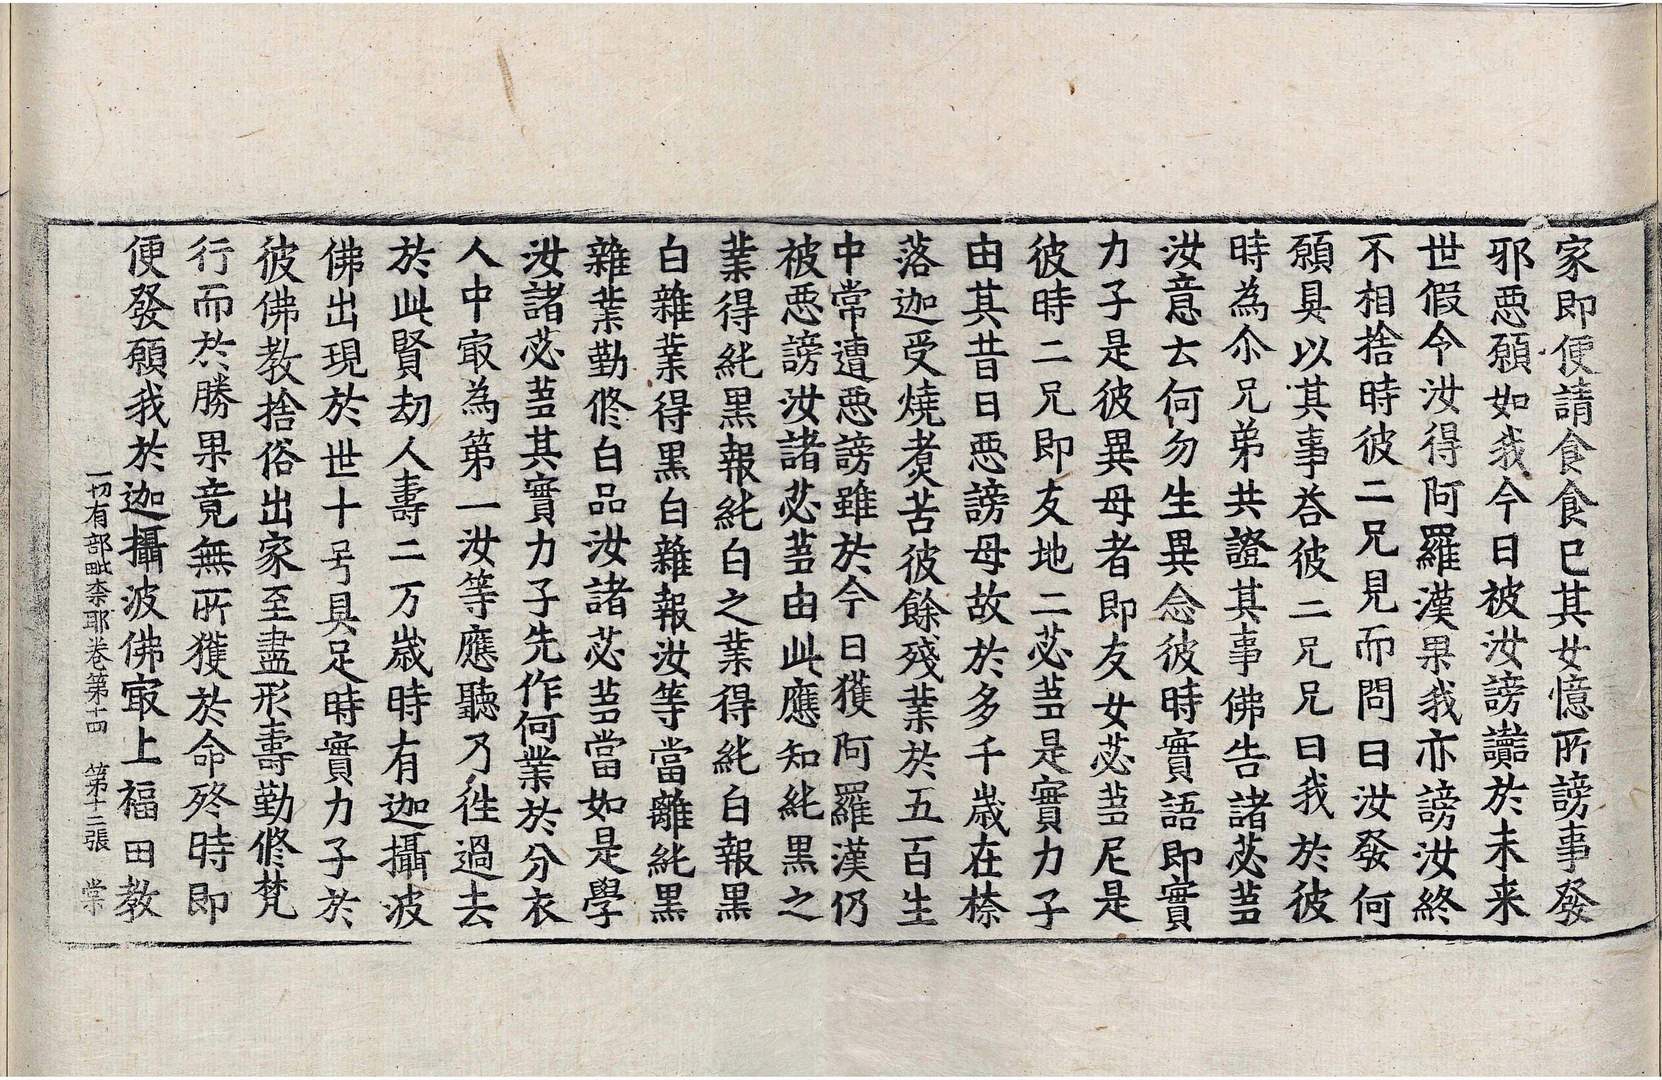 家即便請食食已其女憶所謗事發
邪惡願如我今日被汝謗讟於未来
世假令汝得阿羅漢果我亦謗汝終
不相捨時彼二兄見而問曰汝發何
願具以其事荅彼二兄兄曰我於彼
時為尒兄弟共證其事佛告諸苾蒭
汝意云何勿生異念彼時實語即實
力子是彼異母者即友女苾蒭尼是
彼時二兄即友地二苾蒭是實力子
由其昔日惡謗母故於多千歲在㮈
落迦受燒煑苦彼餘殘業於五百生
中常遭惡謗雖於今日獲阿羅漢仍
被惡謗汝諸苾蒭由此應知純黒之
業得純黒報純白之業得純白報黒
白雜業得黒白雜報汝等當離純黒
雜業勤修白品汝諸苾蒭當如是學
汝諸苾蒭其實力子先作何業於分衣
人中㝡為第一汝等應聽乃徃過去
於此賢劫人壽二万歲時有迦攝波
佛出現於世十号具足時實力子於
彼佛教捨俗出家至盡形壽勤修梵
行而於勝果竟無所獲於命終時即
便發願我於迦攝波佛㝡上福田教
一切有部毗柰耶卷第十四 第十二張 棠